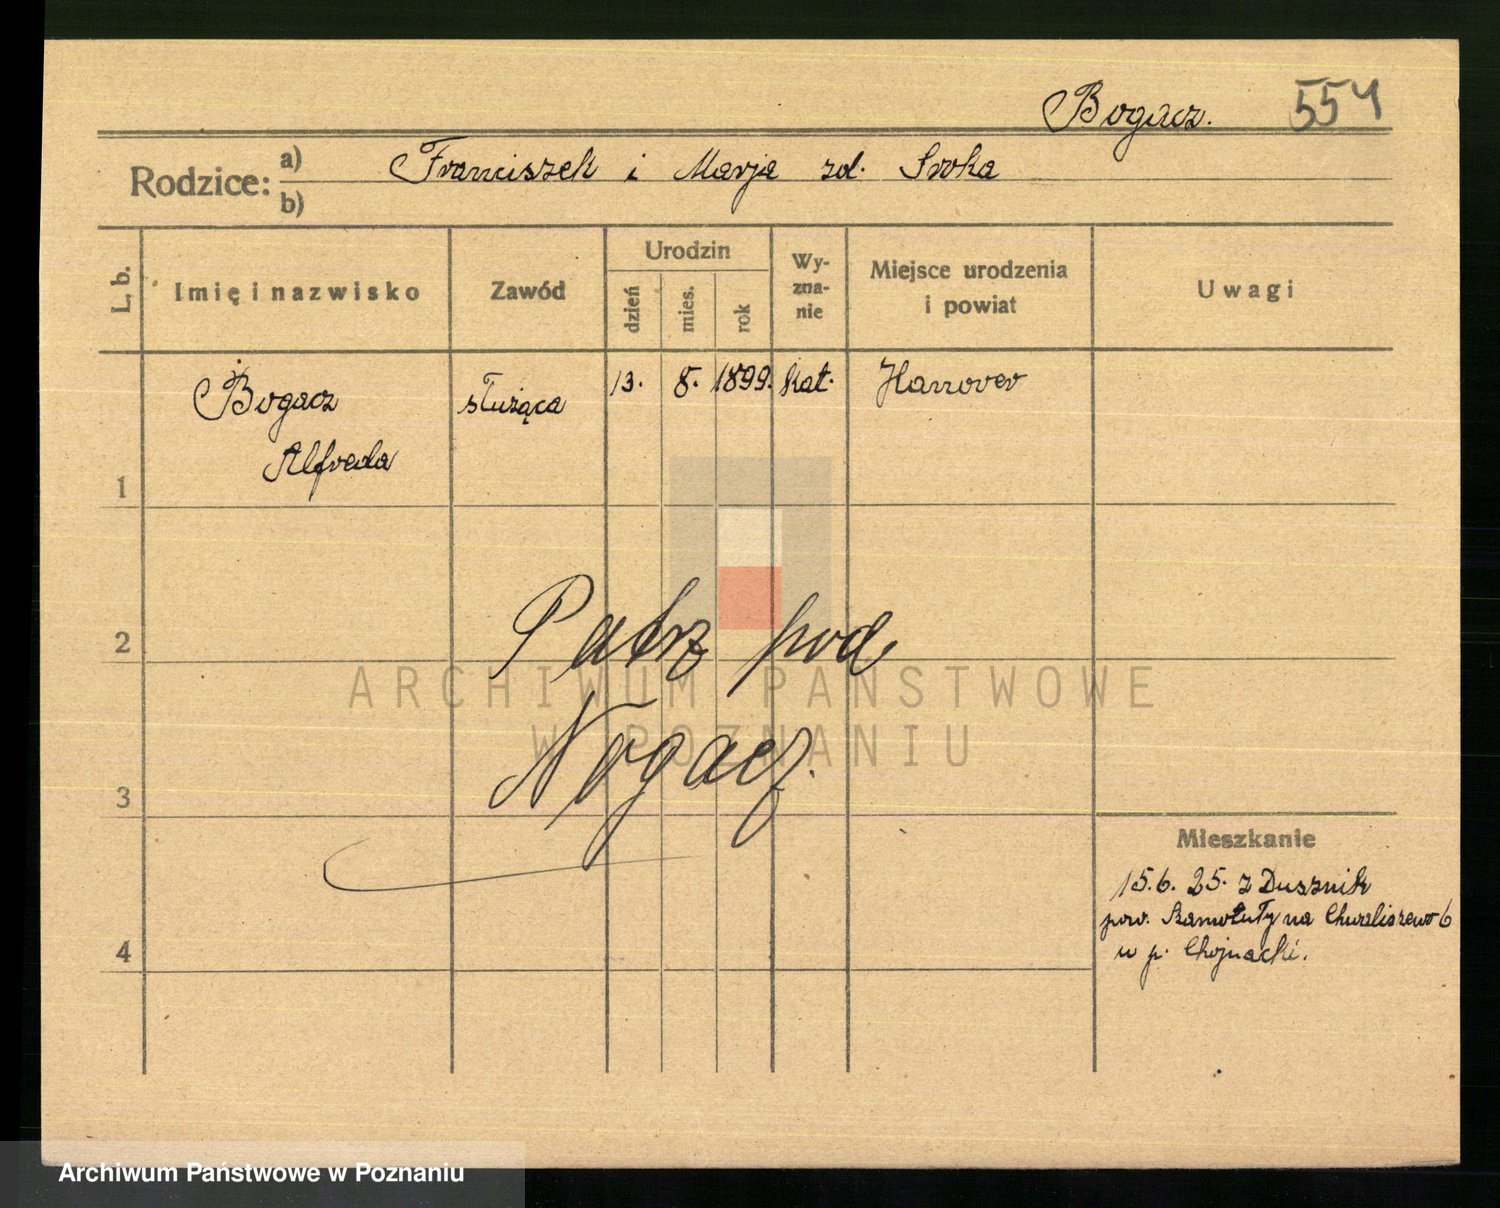 Bogacz. 554
Rodzice: a) Franciszek i Marja zd. Sroka
b)
L. b. Imię i nazwisko Zawód Urodzin dzień mies. rok Wy-zna-nie Miejsce urodzenia i powiat Uwagi
Bogacz służąca 13. 8. 1899. kat. Hanower
Alfreda
1
2
Patrz pod
Nogacz.
3
Mieszkanie
15.6. 25. z Dusznik
pow. Szamotuły na Chwaliszewo 6
u p. Chojnacki.
4
ARCHIWUM PAŃSTWOWE
W POZNANIU
Archiwum Państwowe w Poznaniu